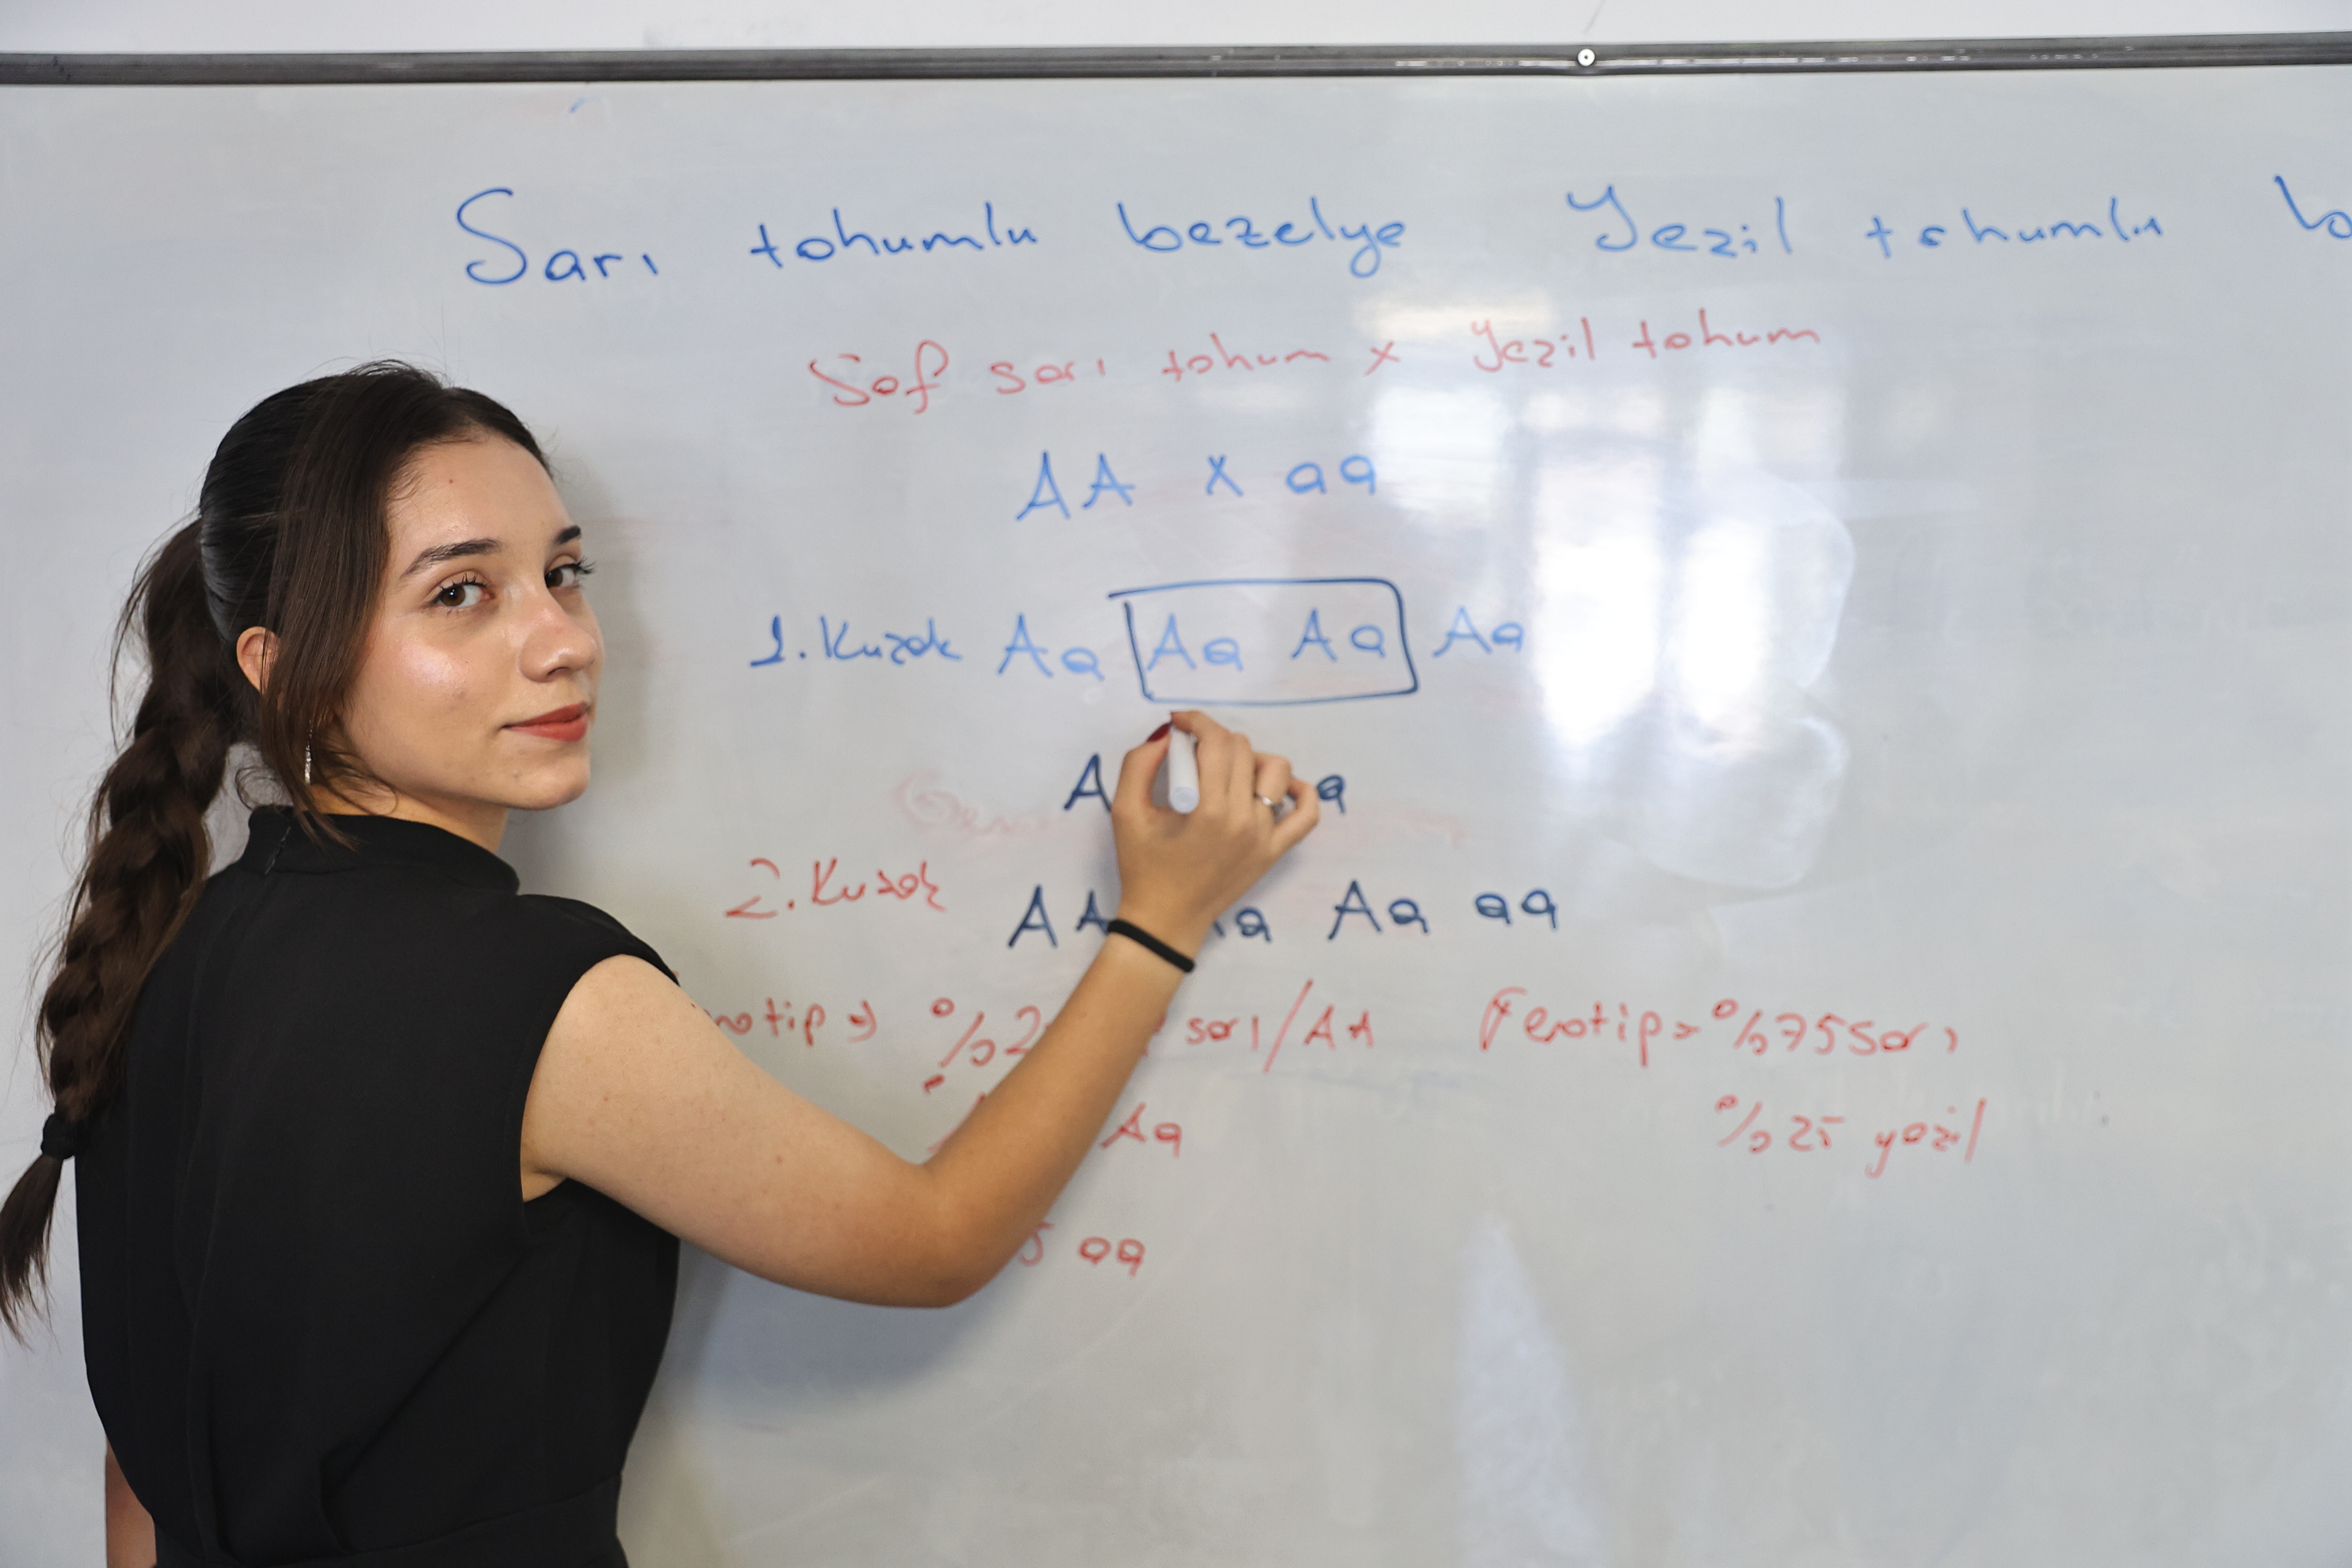 Sarı tohumlu bezelye Yezil tohumlu
Saf sarı tohum x Yezil tohum
AA x aa
1.Kuzak Aa Aa Aa Aa
A a
2.Kuzak AA Aa Aa aa
sarı/AA Fenotip=%75 sarı
Aa %25 yezil
aa